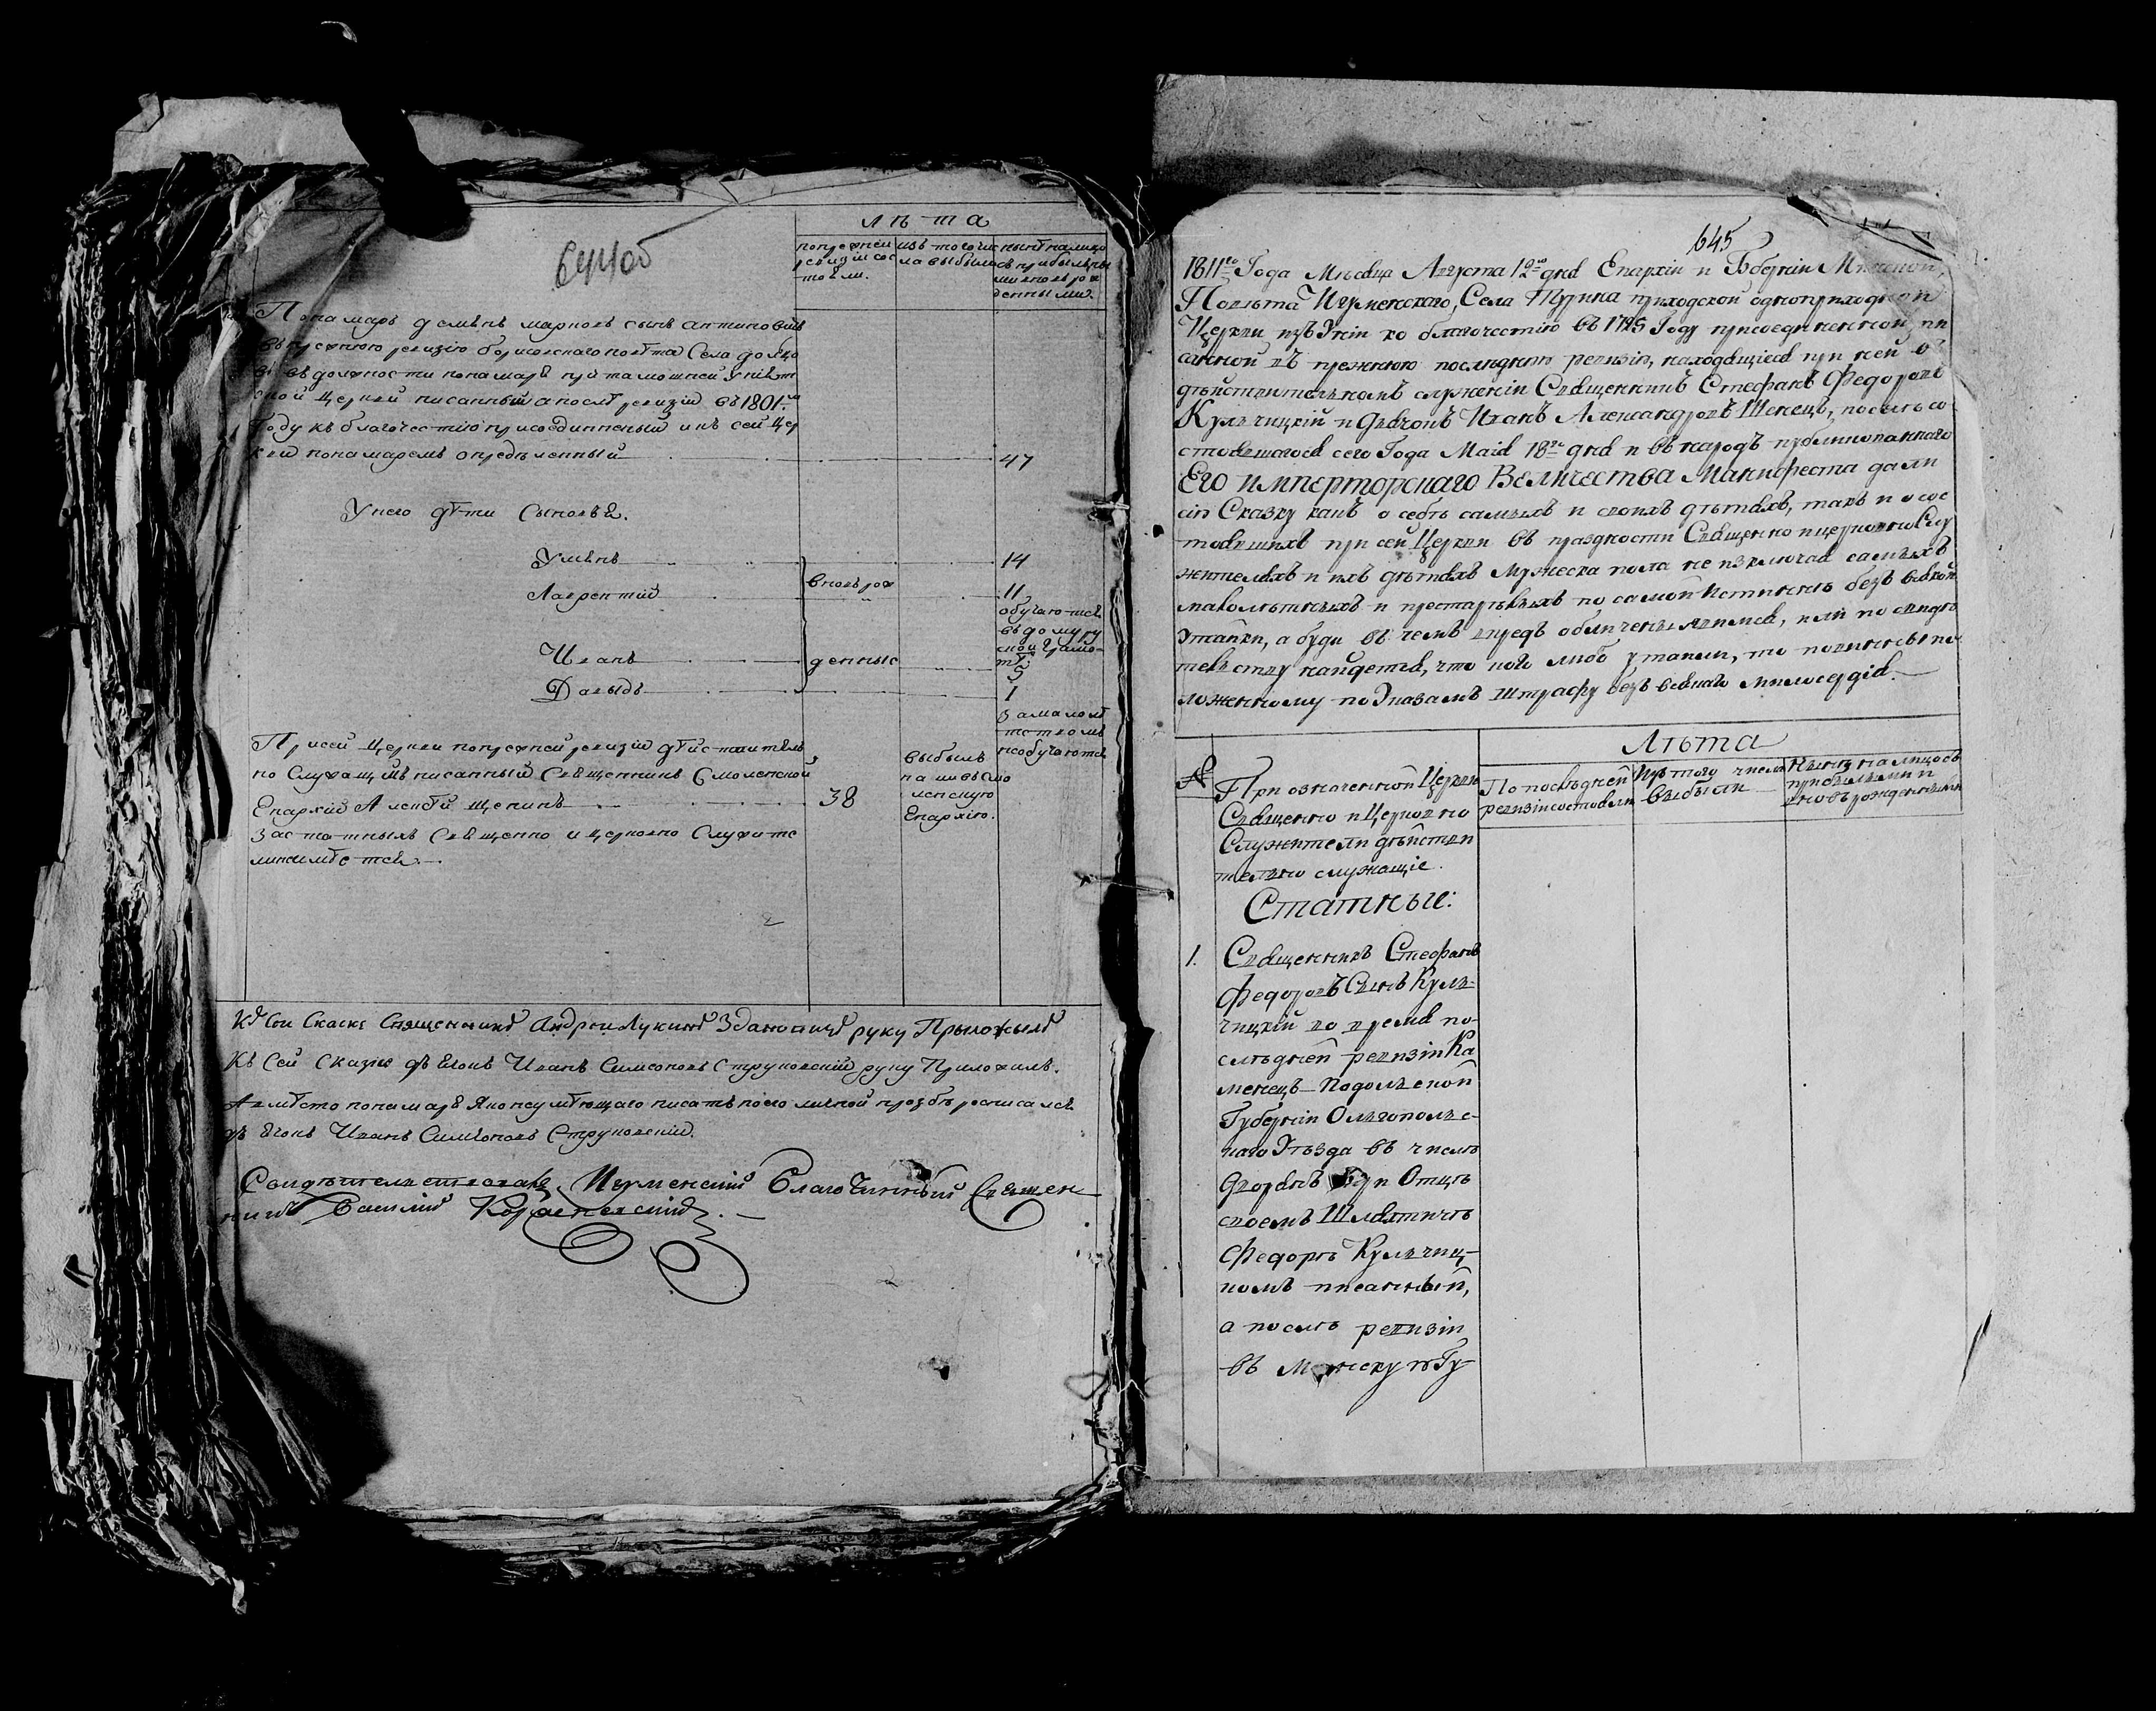 644об
лѣта
попрежней
ревизіи сос
тояли.
изъ того чис
ла выбыло
нынѣ налицо
съ прибылыми
и вновь рож
денными
Понамарь Деміянъ Марковъ сынъ Антиповичъ
въ прежнюю ревизію борисовскаго повѣта Села
въ должности понамаря при тамошней Уніят
ской церкви писанный а послѣ ревизіи въ 1801-мъ
Году къ благочестію присоединенный и къ сей цер
кви понамаремъ опредѣленный 47
У него дѣти Сыновья.
Уліянъ 14
Лаврентій вновь рож 11
обучаются
въ дому ру
ской грамо-
тѣ
Иванъ денные 5
Давыдъ 1
за малолѣ
тствомъ
необучаются
При сей церкви попрежней ревизіи дѣйствитель
но Служащимъ писанный Священникъ Смоленской
Епархіи Алексѣй Щепинъ 38
выбылъ
на
ленскую
Епархію.
Застатныхъ Священно и церковно Служите
лей неимѣется.
Къ Сеи Скаске Священникъ Андреи Лукинъ Здановичъ руку Прыложылъ
Къ Сей Сказке дьячокъ Иванъ Симеоновъ Струковскій руку Приложилъ.
А вмѣсто понамаря яко неумѣющаго писать по его личной прозбѣ росписался
дьячокъ Иванъ Симеоновъ Струковскій.
Свидѣтельствовалъ Игуменскій Благочинный Священ
никъ Василій
645
1811го Года Мѣсяца Августа 12го дня Епархіи и Губерніи Минской,
Повѣта Игуменскаго, Села Турина приходской одноприходной
Церкви изъ Уніи ко благочестію въ 1795 Году присоединенной, пи
санной въ прежнюю послѣднюю ревизію, находящіеся при ней въ
дѣйствительномъ служеніи Священникъ Стефанъ Федоровъ
Кульчицкій и Дьячокъ Иванъ Александровъ Шенецъ, посылѣ со
стоявшагося сего Года Маія 18го дня и въ народъ публикованнаго
Его Императорскаго Величества Манифеста дали
сію Сказку какъ о себѣ самыхъ и своихъ дѣтяхъ, такъ и о сос
тоявшихъ при сей Церкви въ праздности Священно и церковно Слу
жителяхъ и ихъ дѣтяхъ Мужеска пола не изключая самыхъ
малолѣтныхъ и престарѣлыхъ по самой Истиннѣ безъ всякой
Утайки, а буди въ чемъ впредъ обличены явимся, или по свидѣ
тельству найдется, что кого либо утаили, то повинны по
ложенному по Указамъ Штрафу безъ всякаго милосердія.
№
При означенной Церкви
Священно и Церковно
Служители дѣйстви
тельно служащіе.
Лѣта
По послѣдней
ревизіи состояли
Изъ того числа
выбыли
Нынѣ на лицо съ
прибылыми и
вновь рожденными
Статные:
1. Священникъ Стефанъ
Федоровъ Сынъ Куль-
чицкій во время по-
слѣдней ревизіи Ка
менецъ-Подольской
Губерніи Ольгопольс-
каго Уѣзда въ числѣ
Дворянъ при Отцѣ
своемъ Шляхтичѣ
Федорѣ Кульчиц-
комъ писанный,
а послѣ ревизіи
въ Минскую Гу-